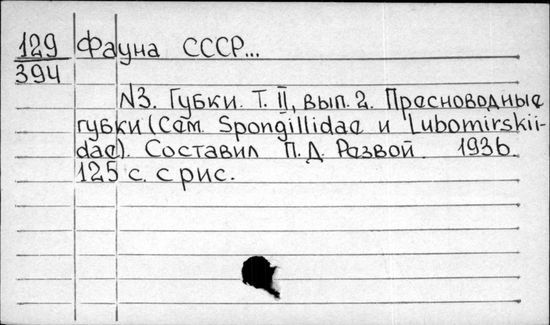 129 Фауна СССР...
394
N3. Губки. Т. II, вып. 2. Пресноводные
губки (Сем. Spongillidae и Lubomirskii-
dae). Составил П. Д. Развой. 1936.
125 с. с рис.